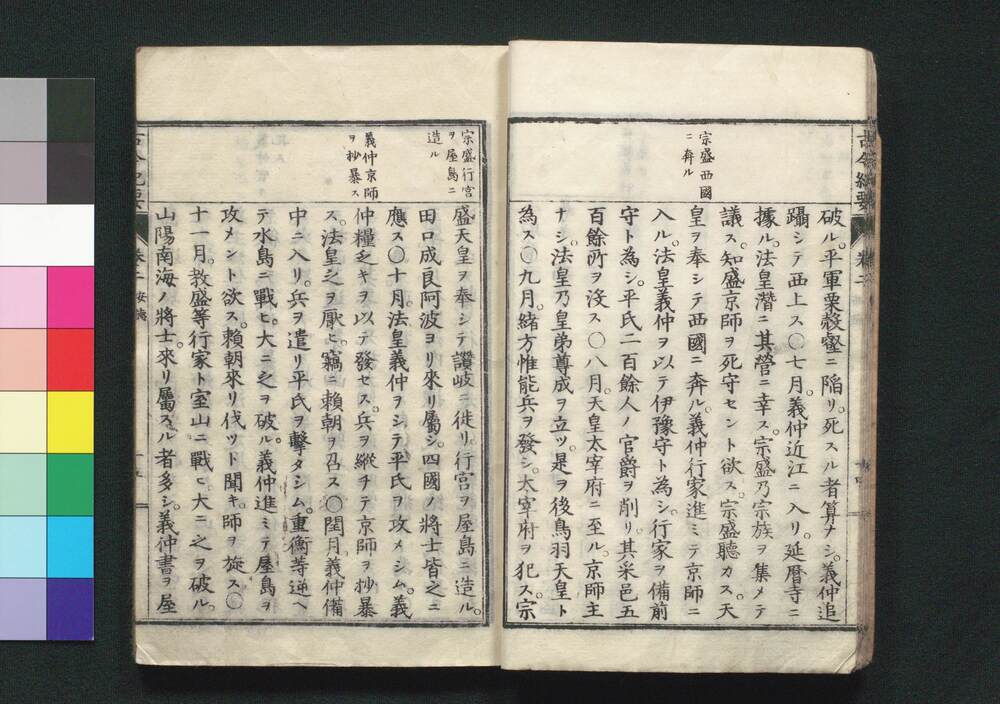 古今紀要
卷二
宗盛西國
ニ奔ル
破ル。平軍栗殻壑ニ陷リ。死スル者算ナシ。義仲追
躡シテ西上ス〇七月。義仲近江ニ入リ。延曆寺ニ
據ル。法皇潛ニ其營ニ幸ス。宗盛乃宗族ヲ集メテ
議ス。知盛京師ヲ死守セント欲ス。宗盛聽カス。天
皇ヲ奉シテ西國ニ奔ル。義仲行家進ミテ京師ニ
入ル。法皇義仲ヲ以テ伊豫守ト為シ。行家ヲ備前
守ト為シ。平氏二百餘人ノ官爵ヲ削リ。其采邑五
百餘所ヲ沒ス〇八月。天皇太宰府ニ至ル。京師主
ナシ。法皇乃皇弟尊成ヲ立ツ。是ヲ後鳥羽天皇ト
為ス〇九月。緒方惟能兵ヲ發シ。太宰府ヲ犯ス。宗
宗盛行宮
ヲ屋島ニ
造ル
義仲京師
ヲ抄暴ス
盛天皇ヲ奉シテ讚岐ニ徙リ。行宮ヲ屋島ニ造ル。
田口成良阿波ヨリ來リ屬シ。四國ノ將士皆之ニ
應ス〇十月。法皇義仲ヲシテ平氏ヲ攻メシム。義
仲糧乏キヲ以テ發セス。兵ヲ縱チテ京師ヲ抄暴
ス。法皇之ヲ厭ヒ。竊ニ賴朝ヲ召ス〇閏月。義仲備
中ニ入リ。兵ヲ遣リ平氏ヲ擊タシム。重衡等逆ヘ
テ水島ニ戰ヒ。大ニ之ヲ破ル。義仲進ミテ屋島ヲ
攻メント欲ス。賴朝來リ伐ツト聞キ。師ヲ旋ス〇
十一月。教盛等行家ト室山ニ戰ヒ。大ニ之ヲ破ル。
山陽南海ノ將士。來リ屬スル者多シ。義仲書ヲ屋
古今紀要
卷二 安德
十五